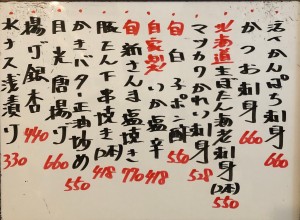 活〆かんぱち刺身 660
かつお刺身 660
北海道生ぼたん海老刺身(2本) 550
マツカワかれい刺身 528
旬 白子ポン酢 550
自家製 いか塩辛 418
旬 新さんま塩焼き 770
豚たん下串焼き(2本) 418
かきバター正油炒め 550
目光唐揚げ 660
揚げ銀杏 440
水ナス浅漬け 330